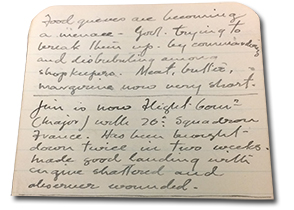 Food queues are becoming
a menace - Govt. trying to
break them up. by commandeering
and distributing among
shopkeepers. Meat, butter,
margerine now very short.
Jim is now Flight Comr
(Major) with 70th Squadron
France. Has been brought-
down twice in two weeks.
Made good landing with
engine shattered and
observer wounded.